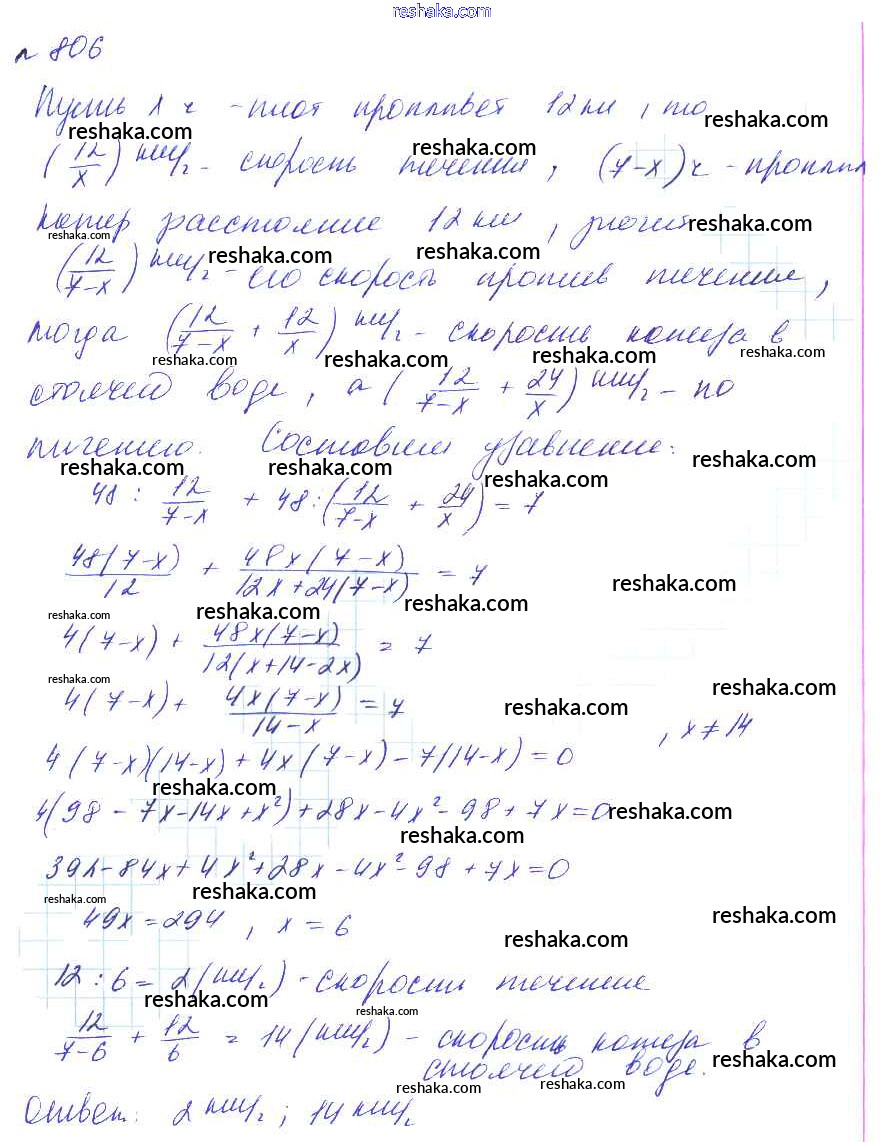 reshaka.com
№ 806
Пусть x ч - плот проплывет 12 км, то
reshaka.com reshaka.com reshaka.com
(12/x) км/ч - скорость течения, (7-x) ч - проплыл
катер расстояние 12 км, значит
reshaka.com reshaka.com reshaka.com reshaka.com
(12/(7-x)) км/ч - его скорость против течение,
тогда (12/(7-x) + 12/x) км/ч - скорость катера в
reshaka.com reshaka.com reshaka.com reshaka.com
стоячей воде, а (12/(7-x) + 24/x) км/ч - по
течению. Составим уравнение:
reshaka.com reshaka.com reshaka.com reshaka.com
48 : 12/(7-x) + 48 : (12/(7-x) + 24/x) = 7
48(7-x)/12 + 48x(7-x)/(12x+24(7-x)) = 7
reshaka.com reshaka.com reshaka.com reshaka.com
4(7-x) + 48x(7-x)/(12(x+14-2x)) = 7
reshaka.com reshaka.com reshaka.com
4(7-x) + 4x(7-x)/(14-x) = 7 , x ≠ 14
4(7-x)(14-x) + 4x(7-x) - 7(14-x) = 0
reshaka.com reshaka.com reshaka.com
4(98 - 7x - 14x + x²) + 28x - 4x² - 98 + 7x = 0
392 - 84x + 4x² + 28x - 4x² - 98 + 7x = 0
reshaka.com reshaka.com reshaka.com reshaka.com
49x = 294 , x = 6
12 : 6 = 2 (км/ч) - скорость течение
reshaka.com reshaka.com
12/(7-6) + 12/6 = 14 (км/ч) - скорость катера в
стоячей воде.
reshaka.com reshaka.com reshaka.com
Ответ: 2 км/ч; 14 км/ч